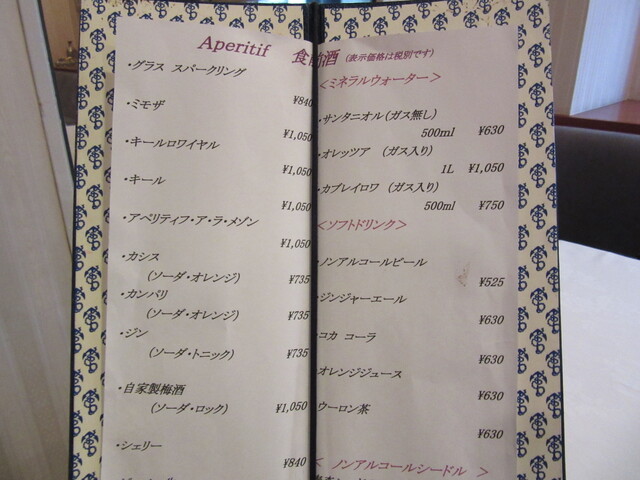 Aperitif 食前酒 (表示価格は税別です)
・グラス スパークリング
¥840
・ミモザ
¥1,050
・キールロワイヤル
¥1,050
・キール
¥1,050
・アペリティフ・ア・ラ・メゾン
¥1,050
・カシス
(ソーダ・オレンジ) ¥735
・カンパリ
(ソーダ・オレンジ) ¥735
・ジン
(ソーダ・トニック) ¥735
・自家製梅酒
(ソーダ・ロック) ¥1,050
・シェリー
¥840
＜ミネラルウォーター＞
・サンタニオル(ガス無し)
500ml ¥630
・オレッツア (ガス入り)
1L ¥1,050
・カブレイロワ (ガス入り)
500ml ¥750
＜ソフトドリンク＞
・ノンアルコールビール
¥525
・ジンジャーエール
¥630
・コカ コーラ
¥630
・オレンジジュース
¥630
・ウーロン茶
¥630
＜ ノンアルコールシードル ＞